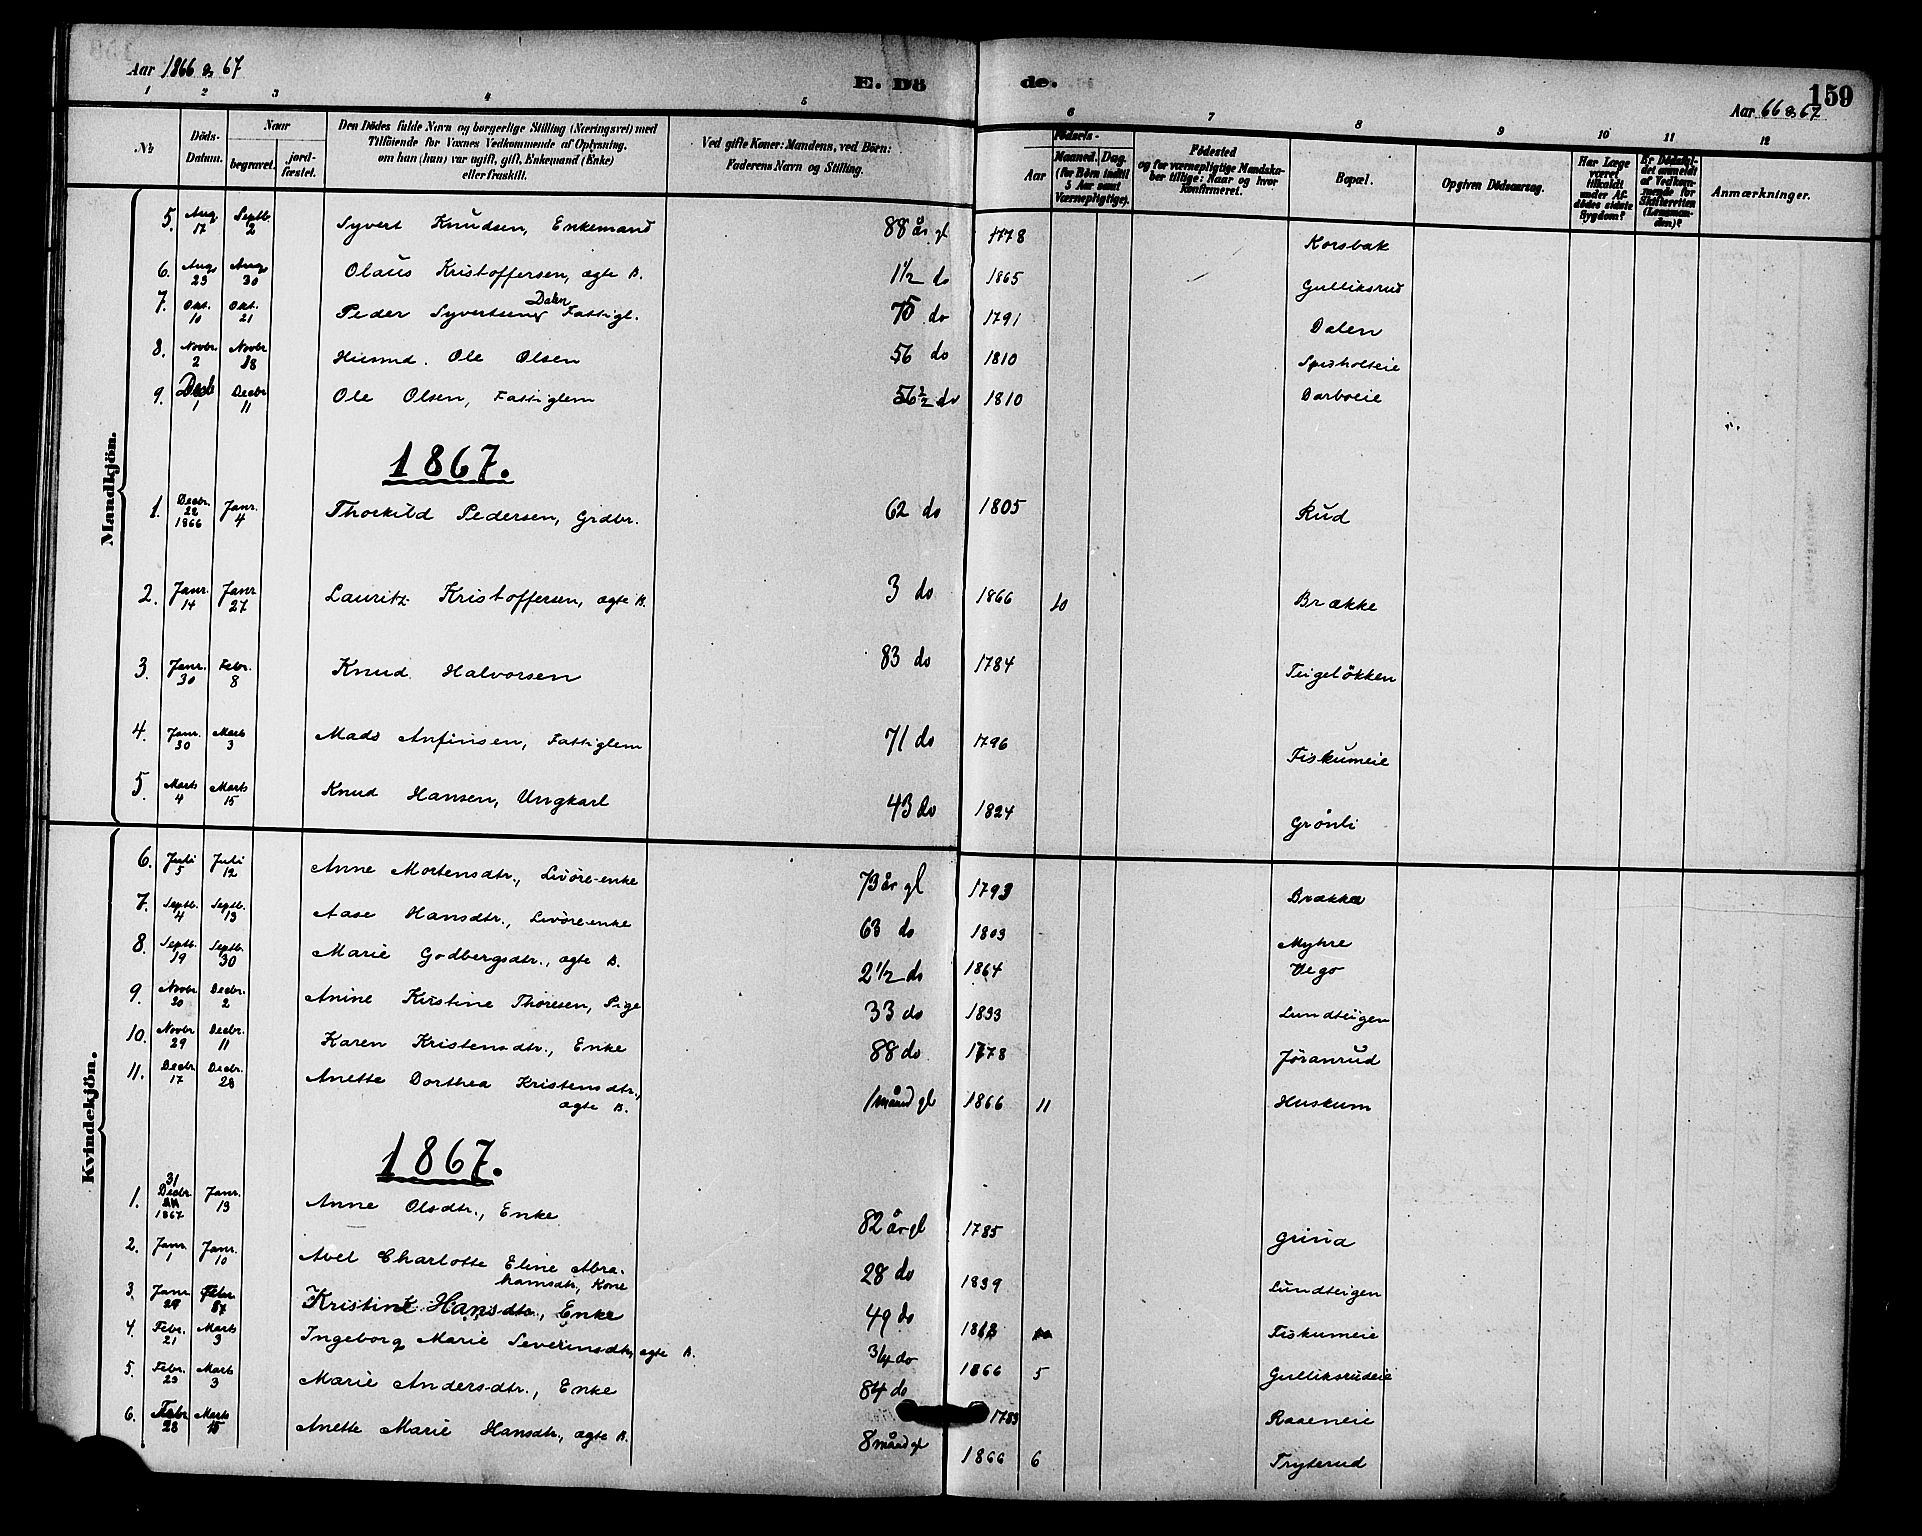 Aar 1866 & 67
E. Dö de.
159
Aar 66 & 67
1 2 3 4 5 6 7 8 9 10 11 12
No
Döds-Datum.
Naar
begravet.
jord-fæstet.
Den Dödes fulde Navn og borgerlige Stilling (Næringsvei) med
Tilföiende for Voxnes Vedkommende af Oplysning,
om han (hun) var ugift, gift, Enkemand (Enke)
eller fraskilt.
Ved gifte Koner: Mandens, ved Börn:
Faderens Navn og Stilling.
Födsels-
Aar
Maaned. Dag.
(for Börn indtil
5 Aar samt
Værnepligtige).
Födested
og for værnepligtige Mandska-
ber tillige: Naar og hvor
konfirmeret.
Bopæl.
Opgiven Dödsaarsag.
Har Læge
været
tilkaldt
under Af-
dödes sidste
Sygdom?
Er Dödsfal-
det anmeldt
af Vedkom-
mende for
Skifteretten
(Lensman-
den)?
Anmærkninger.
Mandkjön.
5. Aug. 17 Septb. 2 Syvert Knudsen, Enkemand 88 år gl 1778 Korsbak
6. Aug. 23 Aug. 30 Olaus Kristoffersen, ægte B. 1½ do 1865 Gulliksrud
7. Okt. 10 Okt. 21 Peder Syvertsen Dalen Fattigl. 75 do 1791 Dalen
8. Novbr 2 Novbr 18 Husmd. Ole Olsen 56 do 1810 Spisholteie
9. Decb 1 Decbr 11 Ole Olsen, Fattiglem 56½ do 1810 Darboeie
1867.
1. Decbr. 22 1866 Janr. 4 Thorkild Pedersen, Grdbr. 62 do 1805 Rud
2. Janr. 14 Janr 27 Lauritz Kristoffersen, ægte B. 3 do 1866 10 Brække
3. Janr. 30 Febr. 8 Knud Halvorsen 83 do 1784 Teigeløkken
4. Janr. 30 Marts 3 Mads Anfinsen, Fattiglem 71 do 1796 Fiskumeie
5. Marts 4 Marts 15 Knud Hansen, Ungkarl 43 do 1824 Grønli
Kvindekjön.
6. Juli 5 Juli 12 Anne Mortensdtr., Livøre-enke 73 år gl 1793 Brække
7. Septb. 4 Septb. 13 Aase Hansdtr., Livøre-enke 63 do 1803 Myhre
8. Septbr. 19 Septb. 30 Marie Godbergsdtr., ægte B. 2½ do 1864 Vego
9. Novbr 20 Decbr. 2 Anine Kristine Thoresen, Pige 33 do 1833 Lundteigen
10. Novbr 29 Decbr. 11 Karen Kristensdtr., Enke 88 do 1778 Jøranrud
11. Decbr 17 Decbr. 28 Anette Dorthea Kristensdtr., ægte B. 1 månd gl 1866 11 Huskum
1867.
1. 31 Decbr 1867 Janr. 13 Anne Olsdtr., Enke 82 år gl 1785 Grina
2. Janr. 1 Janr. 10 Avel Charlotte Eline Abra-
hamsdtr, Kone 28 do 1839 Lundteigen
3. Janr. 29 Febr. Kristine Hansdtr., Enke 49 do 1818 Fiskumeie
4. Febr. 21 Marts 3 Ingeborg Marie Severinsdtr, ægte B. 3/4 do 1866 5 Gulliksrudeie
5. Febr. 23 Marts 3 Marie Andersdtr., Enke 84 do 1783 Raaeneie
6. Febr 28 Marts 15 Anette Marie Hansdtr., ægte B. 8 månd gl 1866 6 Tryterud